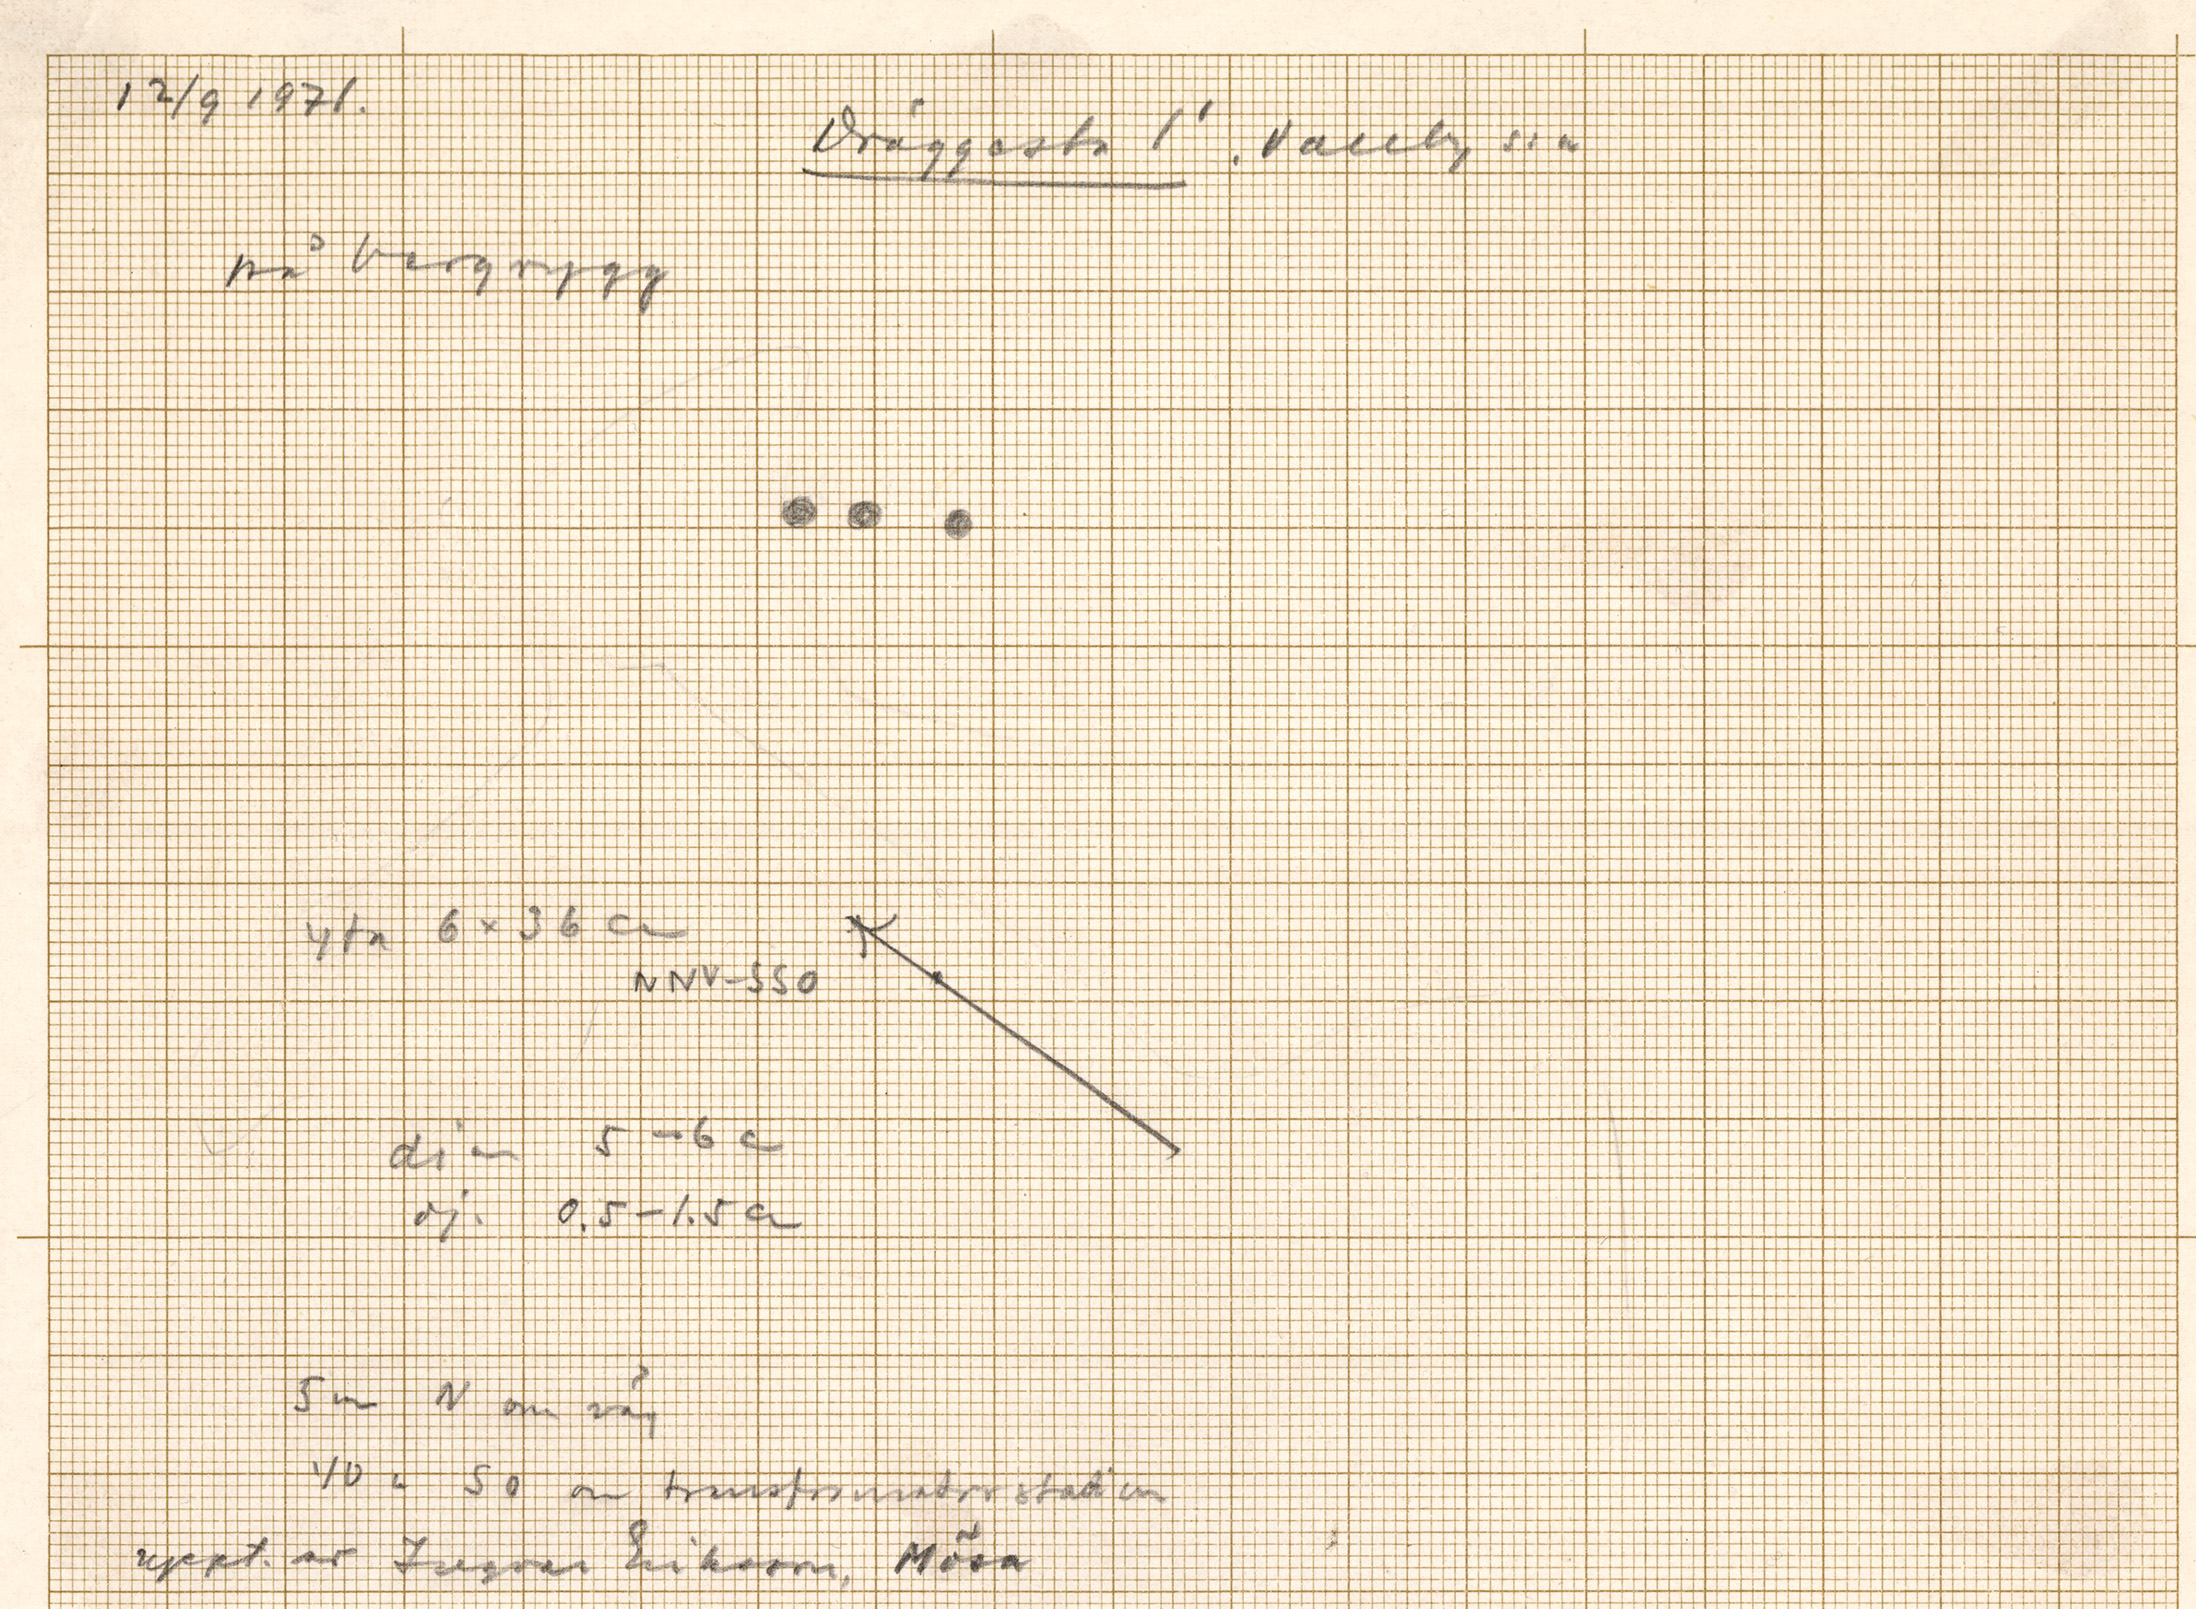 12/9 1971.
Dräggesta 1'. Vallby s:n
på bergrygg
yta 6 x 36 cm
NNV-SSO
diam 5-6 cm
dj. 0.5-1.5 cm
5 m N om väg
40 m SO om transformatorstation
uppt. av Ingvar Eriksson,